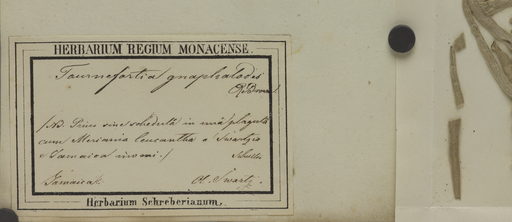 HERBARIUM REGIUM MONACENSE.
Tournefortia gnaphalodes
R. Br.
/NB. Prius sine schedula in una plagula
cum Meriania leucantha a Swartzio
e Jamaica inveni./ Schultes
Jamaica. Ol. Swartz.
Herbarium Schreberianum.